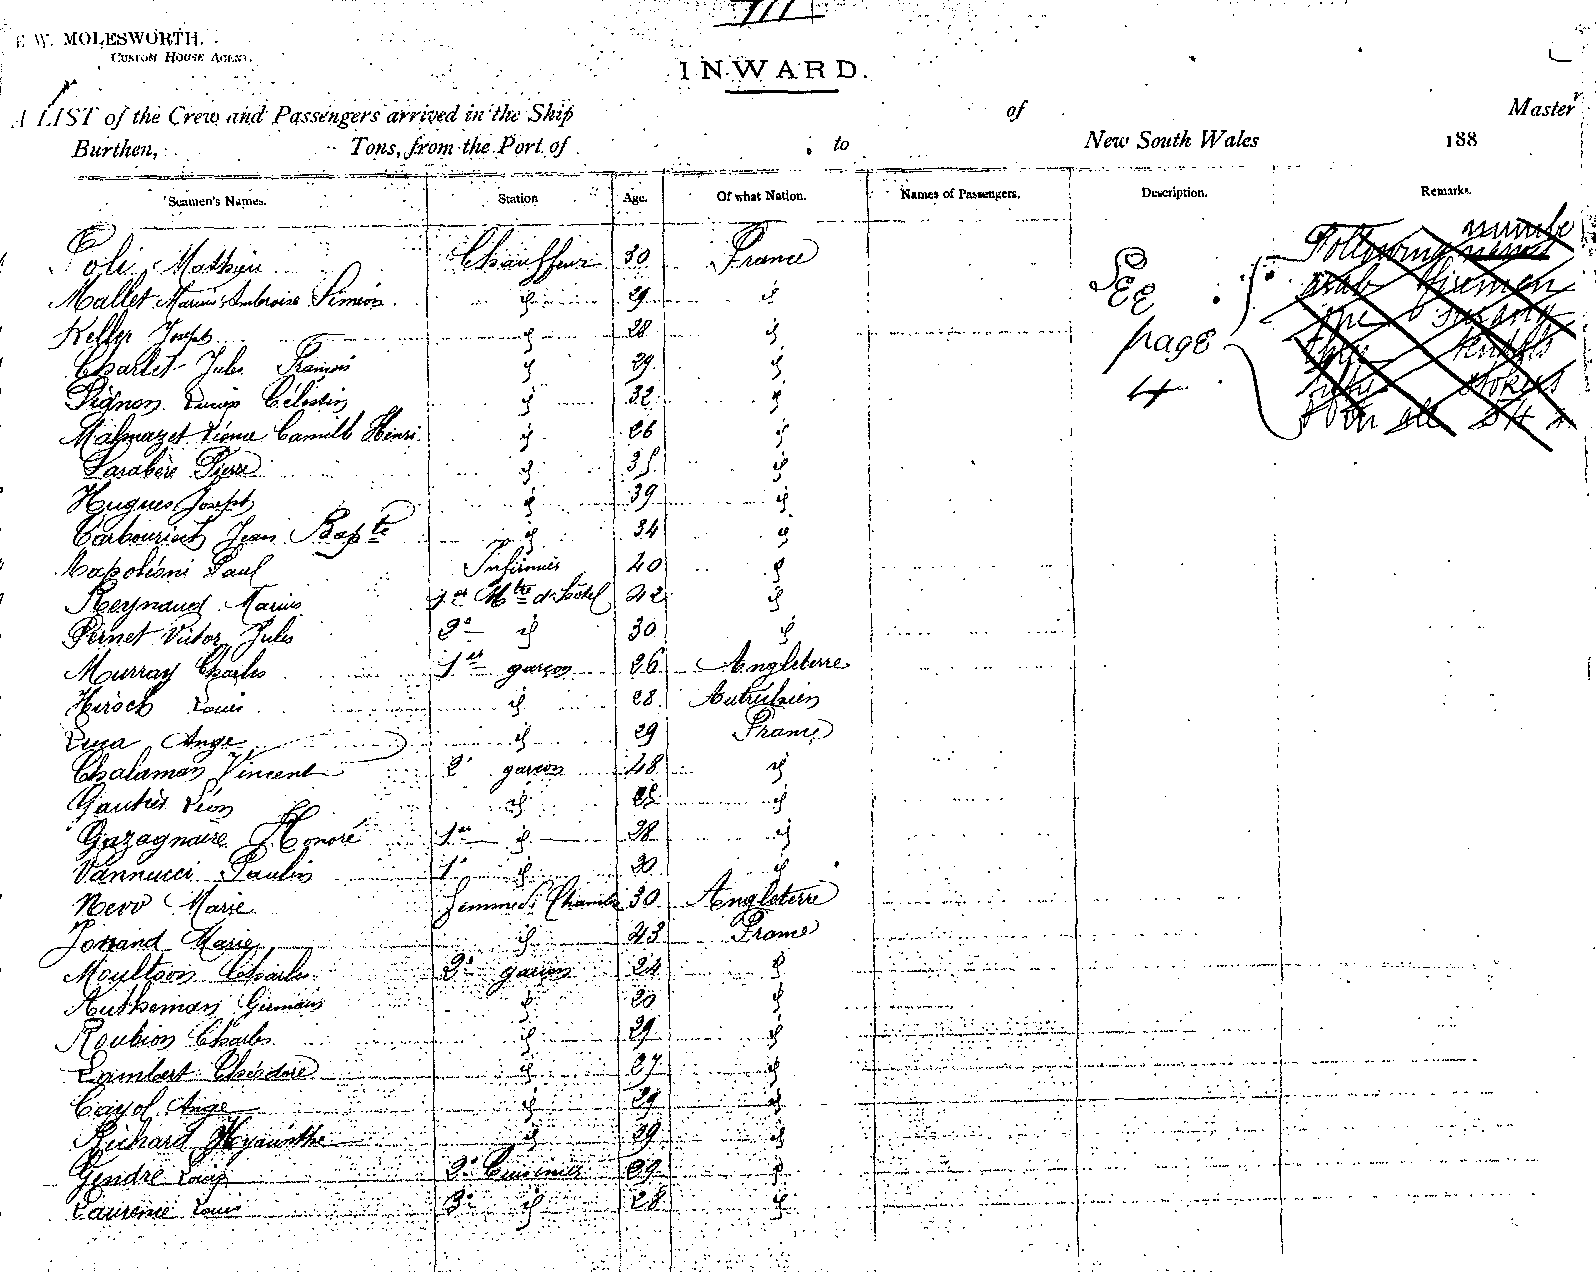 E. W. MOLESWORTH.
CUSTOM HOUSE AGENT.
INWARD.
A LIST of the Crew and Passengers arrived in the Ship of Master
Burthen, Tons, from the Port of to New South Wales 188
Seamen's Names. Station Age. Of what Nation. Names of Passengers. Description. Remarks.
Poli Mathieu Chauffeur 30 France
Mallet Marius Ambroise Siméon id 29 id
Keller Joseph id 28 id
Charlet Jules François id 29 id
Pignon Louis Célestin id 32 id
Malmazet Camille Henri id 26 id
Larabère Pierre id 35 id
Hugues Joseph id 39 id
Carbouriech Jean Bapte id 34 id
Napoléoni Paul Infirmier 40 id
Reynaud Marius 1er Mtre d'hotel 42 id
Pernet Victor Jules 2e id 30 id
Murray Charles 1er garçon 26 Angleterre
Hirsch Louis id 28 Autrichien
Luca Ange id 29 France
Chalaman Vincent 2e garçon 48 id
Gautier Léon id id
Gazagnaire Honoré 1er id 28 id
Vannucci Paulin 1er id 30 id
Nevo Marie femme de Chambre 30 Angleterre
Marie id 43 France
Moultson Charles 2e garçon 24 id
Autheman Germain id 20 id
Roubion Charles id 29 id
Lambert Théodore id 27 id
Cayol Ange id 29 id
Richard Hyacinthe id 29 id
Gendre Louis 2e Cuisinier 29 id
Laurence Louis 3e id 28 id
See
page
4
Following
firemen